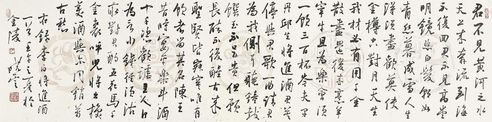 君不見黃河之水
天上來奔流到海
不復回君不見高堂
明鏡悲白髮朝如
青絲暮成雪人生
得意須盡歡莫使
金樽空對月天生
我材必有用千金
散盡還復來烹羊
宰牛且為樂會須
一飲三百杯岑夫子
丹丘生將進酒君莫
停與君歌一曲請君
為我側耳聽鐘鼓
饌玉不足貴但願
長醉不願醒古來
聖賢皆寂寞惟有
飲者留其名陳王
昔時宴平樂斗酒
十千恣歡謔主人何
為言少錢徑須沽
取對君酌五花馬千
金裘呼兒將出換
美酒與爾同銷萬
古愁
右錄李白將進酒
金陵